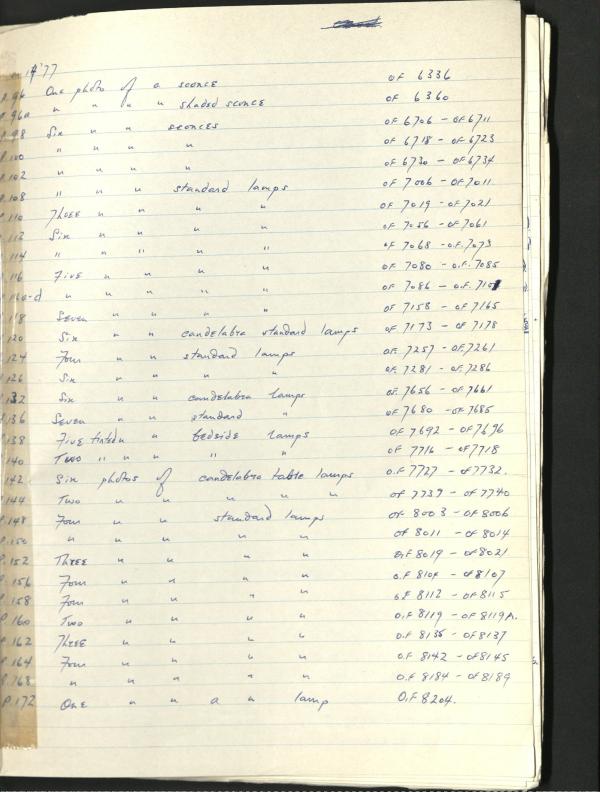 '77
P.96 One photo of a sconce OF 6336
P.96a " " " " shaded sconce OF 6360
P.98 Six " " sconces OF 6706 - OF 6711
P.100 " " " " OF 6718 - OF 6723
P.102 " " " " OF 6730 - OF 6734
P.108 " " " standard lamps OF 7006 - OF 7011
P.110 Three " " " " OF 7019 - OF 7021
P.112 Six " " " " OF 7056 - OF 7061
P.114 " " " " " OF 7068 - O.F. 7073
P.116 Five " " " " OF 7080 - O.F. 7085
P.116a-d " " " " " OF 7086 - O.F.
P.118 Seven " " " " OF 7158 - OF 7165
P.120 Six " " candelabra standard lamps OF 7173 - OF 7178
P.124 Four " " standard lamps OF. 7257 - OF. 7261
P.126 Six " " " " OF. 7281 - OF. 7286
P.132 Six " " candelabra lamps OF. 7656 - OF 7661
P.136 Seven " " standard " OF 7680 - OF 7685
P.138 Five tinted " " bedside lamps OF 7692 - OF 7696
P.140 Two " " " " " OF 7716 - OF 7718
P.142 Six photos of candelabra table lamps O.F 7727 - OF 7732.
P.144 Two " " " " " OF 7739 - OF 7740
P.148 Four " " standard lamps OF 8003 - OF 8006
P.150 " " " " " OF 8011 - OF 8014
P.152 Three " " " " O.F 8019 - OF 8021
P.156 Four " " " " O.F 8104 - OF 8107
P.158 Four " " " " OF 8112 - OF 8115
P.160 Two " " " " O.F 8119 - OF 8119A.
P.162 Three " " " " O.F 8135 - OF 8137
P.164 Four " " " " O.F 8142 - OF 8145
P.168 " " " " " O.F 8184 - OF 8189
P.172 One " " a " lamp O.F 8204.